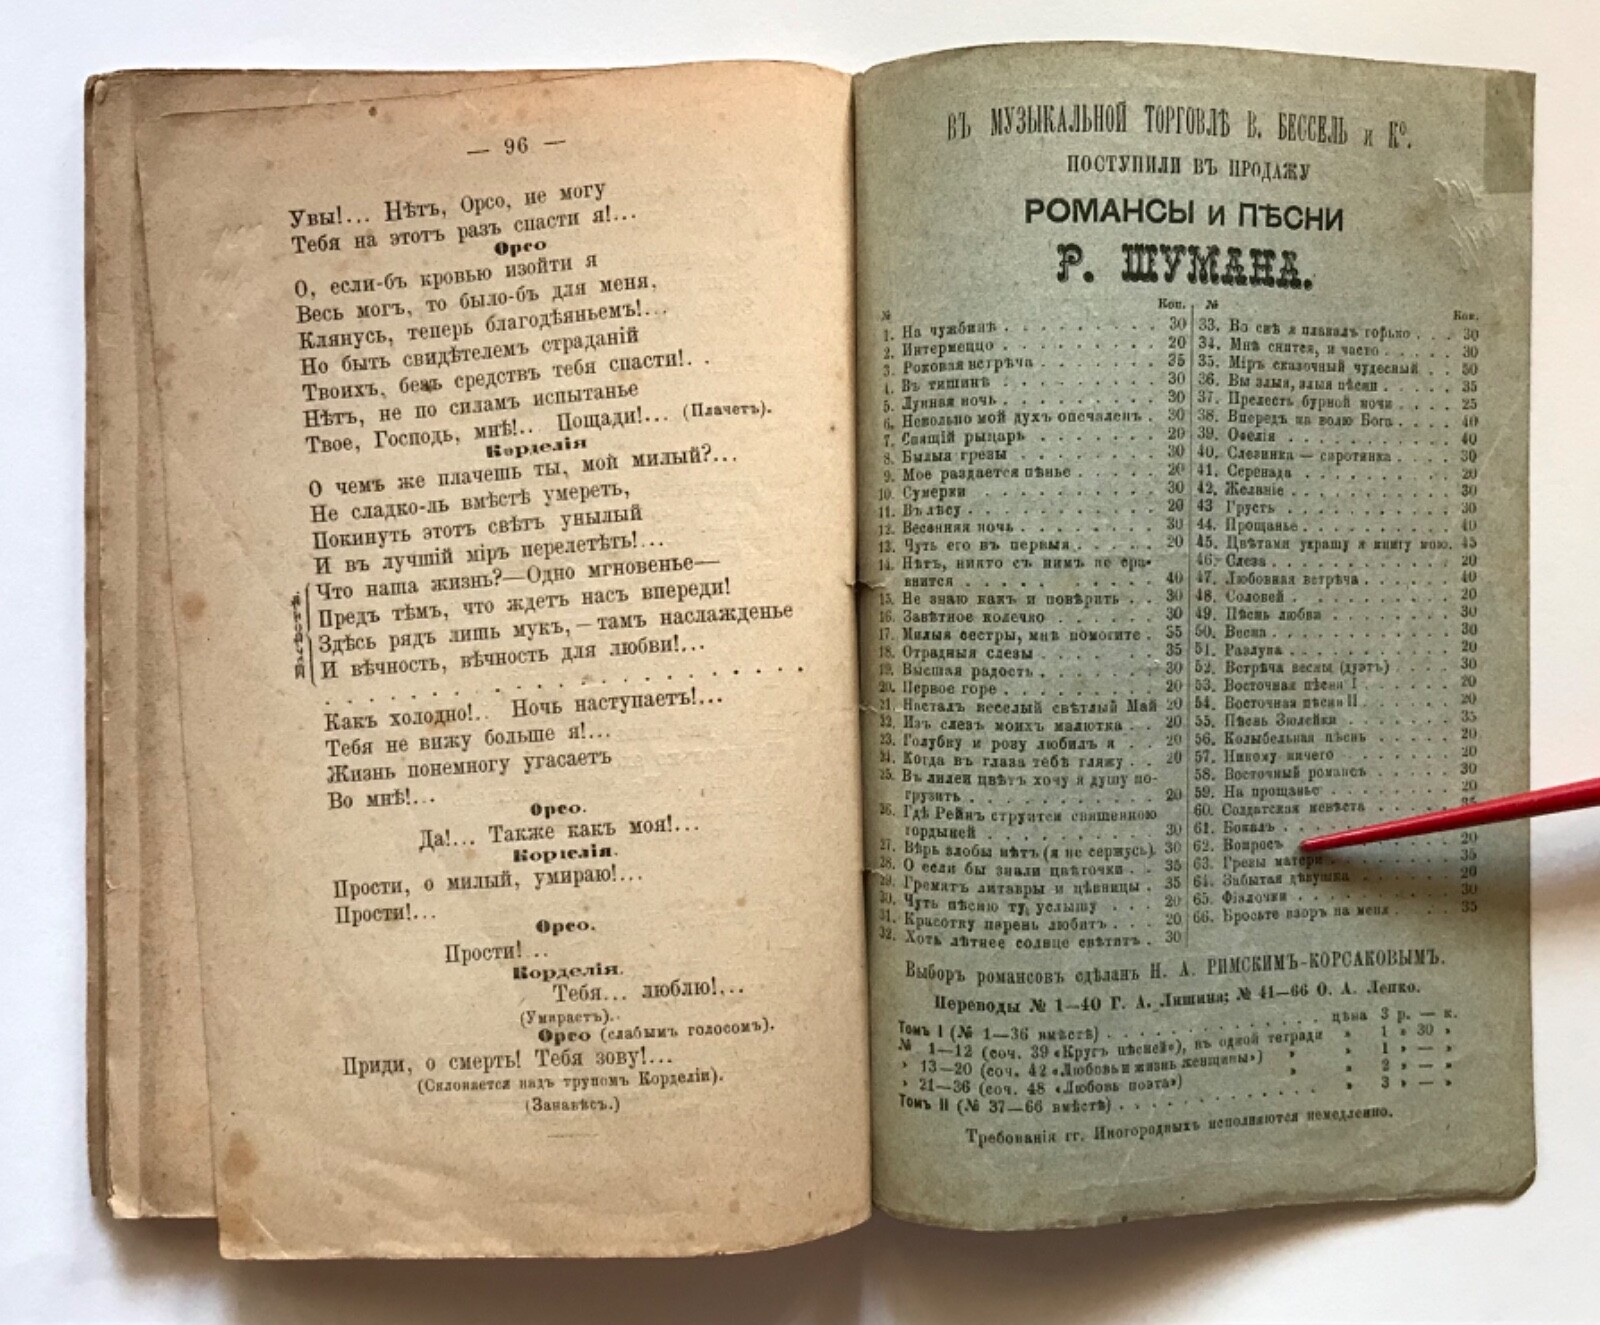 — 96 —
Увы!... Нѣтъ, Орсо, не могу
Тебя на этотъ разъ спасти я!...
Орсо
О, если-бъ кровью изойти я
Весь могъ, то было-бъ для меня,
Клянусь, теперь благодѣяньемъ!...
Но быть свидѣтелемъ страданій
Твоихъ, безъ средствъ тебя спасти!. .
Нѣтъ, не по силамъ испытанье
Твое, Господь, мнѣ!.. Пощади!... (Плачетъ).
Корделія
О чемъ же плачешь ты, мой милый?...
Не сладко-ль вмѣстѣ умереть,
Покинуть этотъ свѣтъ унылый
И въ лучшій міръ перелетѣть!...
Что наша жизнь?—Одно мгновенье—
Предъ тѣмъ, что ждетъ насъ впереди!
Здѣсь рядъ лишь мукъ,—тамъ наслажденье
И вѣчность, вѣчность для любви!...
Какъ холодно!.. Ночь наступаетъ!...
Тебя не вижу больше я!...
Жизнь понемногу угасаетъ
Во мнѣ!...
Орсо.
Да!... Также какъ моя!...
Корделія.
Прости, о милый, умираю!...
Прости!...
Орсо.
Прости!...
Корделія.
Тебя... люблю!...
(Умираетъ)..
Орсо (слабымъ голосомъ).
Приди, о смерть! Тебя зову!...
(Склоняется надъ трупомъ Корделіи).
(Занавѣсъ.)
ВЪ МУЗЫКАЛЬНОЙ ТОРГОВЛѢ В. БЕССЕЛЬ и Кº.
ПОСТУПИЛИ ВЪ ПРОДАЖУ
РОМАНСЫ и ПѢСНИ
Р. ШУМАНА.
№ Коп.
1. На чужбинѣ . . . 30
2. Интермеццо . . . 20
3. Роковая встрѣча . . . 35
4. Въ тишинѣ . . . 30
5. Лунная ночь . . . 30
6. Невольно мой духъ опечаленъ . 30
7. Спящій рыцарь . . . 20
8. Былыя грезы . . . 30
9. Мое раздается пѣнье . . . 20
10. Сумерки . . . 30
11. Въ лѣсу . . . 20
12. Весенняя ночь . . . 30
13. Чуть его въ первыя . . . 20
14. Нѣтъ, никто съ нимъ не сра-
внится . . . 40
15. Не знаю какъ и повѣрить . . 30
16. Завѣтное колечко . . . 30
17. Милыя сестры, мнѣ помогите . 35
18. Отрадныя слезы . . . 35
19. Высшая радость . . . 30
20. Первое горе . . . 20
21. Насталъ веселый свѣтлый Май 20
22. Изъ слезъ моихъ малютка . . 20
23. Голубку и розу любилъ я . . 20
24. Когда въ глаза тебѣ гляжу . . 20
25. Въ лилеи цвѣтъ хочу я душу по-
грузить . . . 20
26. Гдѣ Рейнъ струится священною
гордыней . . . 30
27. Вѣрь злобы нѣтъ (я не сержусь). 30
28. О если бы знали цвѣточки . . 35
29. Гремятъ литавры и цѣвницы . 35
30. Чуть пѣсню ту услышу . . . 20
31. Красотку парень любитъ . . . 20
32. Хоть лѣтнее солнце свѣтитъ . 30
№ Коп.
33. Во снѣ я плакалъ горько . . . 30
34. Мнѣ снится, и часто . . . 30
35. Міръ сказочный чудесный . . 50
36. Вы злыя, злыя пѣсни . . . 35
37. Прелесть бурной ночи . . . 25
38. Впередъ на волю Бога . . . 40
39. Офелія . . . 40
40. Слезинка — сиротинка . . . 30
41. Серенада . . . 20
42. Желаніе . . . 30
43 Грусть . . . 30
44. Прощанье . . . 40
45. Цвѣтами украшу я книгу мою. 45
46. Слеза . . . 20
47. Любовная встрѣча . . . 40
48. Соловей . . . 20
49. Пѣснь любви . . . 30
50. Весна . . . 30
51. Разлука . . . 20
52. Встрѣча весны (дуэтъ) . . . 30
53. Восточная пѣсня I . . . 20
54. Восточная пѣсня II . . . 20
55. Пѣснь Зюлейки . . . 35
56. Колыбельная пѣснь . . . 20
57. Никому ничего . . . 20
58. Восточный романсъ . . . 30
59. На прощанье . . . 20
60. Солдатская невѣста . . . 35
61. Бокалъ . . .
62. Вопросъ . . . 20
63. Грезы матери . . . 35
64. Забытая дѣвушка . . . 20
65. Фіалочки . . . 30
66. Бросьте взоръ на меня . . . 35
Выборъ романсовъ сдѣланъ Н. А. РИМСКИМЪ-КОРСАКОВЫМЪ.
Переводы № 1—40 Г. А. Лишина; № 41—66 О. А. Лепко.
Томъ I (№ 1—36 вмѣстѣ) . . . цѣна 3 р. — к.
№ 1—12 (соч. 39 «Кругъ пѣсней»), въ одной тетради » 1 » 30 »
» 13—20 (соч. 42 «Любовь и жизнь женщины») » » 1 » — »
» 21—36 (соч. 48 «Любовь поэта») » » 2 » — »
Томъ II (№ 37—66 вмѣстѣ) . . . » 3 » — »
Требованія гг. Иногородныхъ исполняются немедленно.